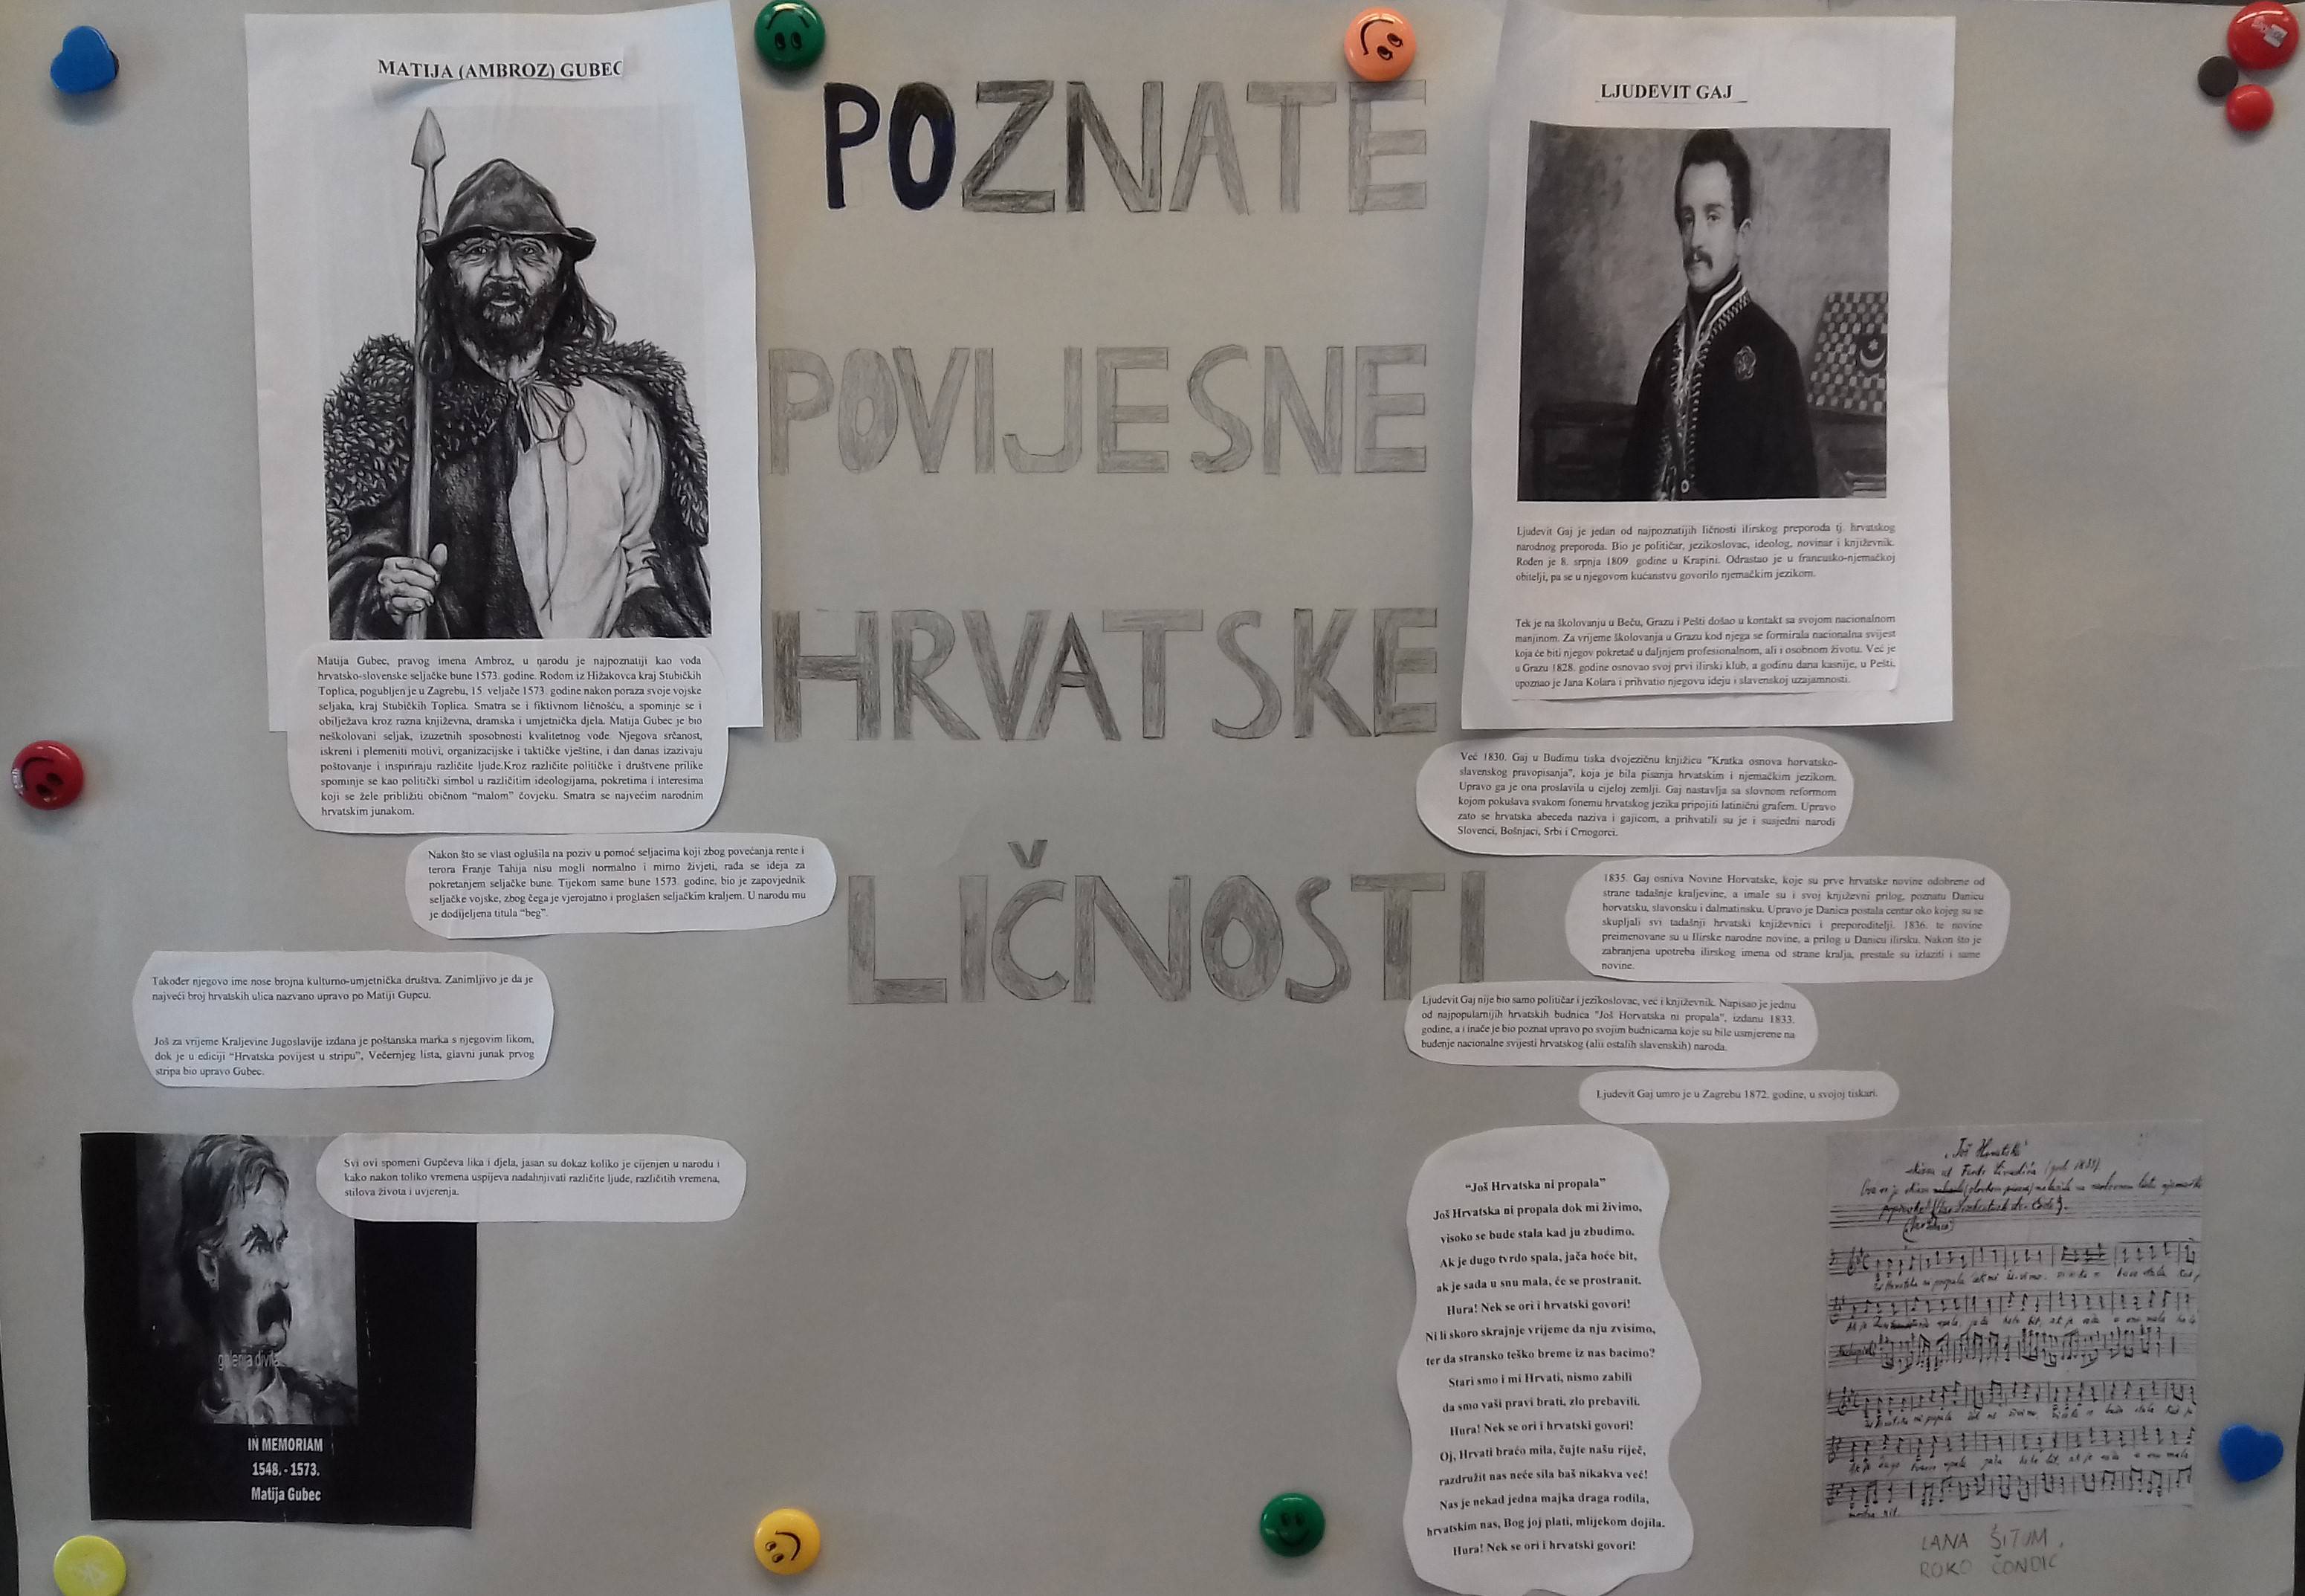 POZNATE
POVIJESNE
HRVATSKE
LIČNOSTI
MATIJA (AMBROZ) GUBEC
Matija Gubec, pravog imena Ambroz, u narodu je najpoznatiji kao vođa
hrvatsko-slovenske seljačke bune 1573. godine. Rodom iz Hižakovca kraj Stubičkih
Toplica, pogubljen je u Zagrebu, 15. veljače 1573. godine nakon poraza svoje vojske
seljaka, kraj Stubičkih Toplica. Smatra se i fiktivnom ličnošću, a spominje se i
obilježava kroz razna književna, dramska i umjetnička djela. Matija Gubec je bio
neškolovani seljak, izuzetnih sposobnosti kvalitetnog vođe. Njegova srčanost,
iskreni i plemeniti motivi, organizacijske i taktičke vještine, i dan danas izazivaju
poštovanje i inspiriraju različite ljude.Kroz različite političke i društvene prilike
spominje se kao politički simbol u različitim ideologijama, pokretima i interesima
koji se žele približiti običnom “malom” čovjeku. Smatra se najvećim narodnim
hrvatskim junakom.
Nakon što se vlast oglušila na poziv u pomoć seljacima koji zbog povećanja rente i
terora Franje Tahija nisu mogli normalno i mirno živjeti, rađa se ideja za
pokretanjem seljačke bune. Tijekom same bune 1573. godine, bio je zapovjednik
seljačke vojske, zbog čega je vjerojatno i proglašen seljačkim kraljem. U narodu mu
je dodijeljena titula “beg”.
Također njegovo ime nose brojna kulturno-umjetnička društva. Zanimljivo je da je
najveći broj hrvatskih ulica nazvano upravo po Matiji Gupcu.
Još za vrijeme Kraljevine Jugoslavije izdana je poštanska marka s njegovim likom,
dok je u ediciji “Hrvatska povijest u stripu”, Večernjeg lista, glavni junak prvog
stripa bio upravo Gubec.
Svi ovi spomeni Gupčeva lika i djela, jasan su dokaz koliko je cijenjen u narodu i
kako nakon toliko vremena uspijeva nadahnjivati različite ljude, različitih vremena,
stilova života i uvjerenja.
galerija divila
IN MEMORIAM
1548. - 1573.
Matija Gubec
LJUDEVIT GAJ
Ljudevit Gaj je jedan od najpoznatijih ličnosti ilirskog preporoda tj. hrvatskog
narodnog preporoda. Bio je političar, jezikoslovac, ideolog, novinar i književnik.
Rođen je 8. srpnja 1809. godine u Krapini. Odrastao je u francusko-njemačkoj
obitelji, pa se u njegovom kućanstvu govorilo njemačkim jezikom.
Tek je na školovanju u Beču, Grazu i Pešti došao u kontakt sa svojom nacionalnom
manjinom. Za vrijeme školovanja u Grazu kod njega se formirala nacionalna svijest
koja će biti njegov pokretač u daljnjem profesionalnom, ali i osobnom životu. Već je
u Grazu 1828. godine osnovao svoj prvi ilirski klub, a godinu dana kasnije, u Pešti,
upoznao je Jana Kolara i prihvatio njegovu ideju i slavenskoj uzajamnosti.
Već 1830. Gaj u Budimu tiska dvojezičnu knjižicu "Kratka osnova horvatsko-
slavenskog pravopisanja", koja je bila pisanja hrvatskim i njemačkim jezikom.
Upravo ga je ona proslavila u cijeloj zemlji. Gaj nastavlja sa slovnom reformom
kojom pokušava svakom fonemu hrvatskog jezika pripojiti latinični grafem. Upravo
zato se hrvatska abeceda naziva i gajicom, a prihvatili su je i susjedni narodi
Slovenci, Bošnjaci, Srbi i Crnogorci.
1835. Gaj osniva Novine Horvatske, koje su prve hrvatske novine odobrene od
strane tadašnje kraljevine, a imale su i svoj književni prilog, poznatu Danicu
horvatsku, slavonsku i dalmatinsku. Upravo je Danica postala centar oko kojeg su se
skupljali svi tadašnji hrvatski književnici i preporoditelji. 1836. te novine
preimenovane su u Ilirske narodne novine, a prilog u Danicu ilirsku. Nakon što je
zabranjena upotreba ilirskog imena od strane kralja, prestale su izlaziti i same
novine.
Ljudevit Gaj nije bio samo političar i jezikoslovac, već i književnik. Napisao je jednu
od najpopularnijih hrvatskih budnica "Još Horvatska ni propala", izdanu 1833.
godine, a i inače je bio poznat upravo po svojim budnicama koje su bile usmjerene na
buđenje nacionalne svijesti hrvatskog (alii ostalih slavenskih) naroda.
Ljudevit Gaj umro je u Zagrebu 1872. godine, u svojoj tiskari.
“Još Hrvatska ni propala”
Još Hrvatska ni propala dok mi živimo,
visoko se bude stala kad ju zbudimo.
Ak je dugo tvrdo spala, jača hoće bit,
ak je sada u snu mala, će se prostranit.
Hura! Nek se ori i hrvatski govori!
Ni li skoro skrajnje vrijeme da nju zvisimo,
ter da stransko teško breme iz nas bacimo?
Stari smo i mi Hrvati, nismo zabili
da smo vaši pravi brati, zlo prebavili.
Hura! Nek se ori i hrvatski govori!
Oj, Hrvati braćo mila, čujte našu riječ,
razdružit nas neće sila baš nikakva već!
Nas je nekad jedna majka draga rodila,
hrvatskim nas, Bog joj plati, mlijekom dojila.
Hura! Nek se ori i hrvatski govori!
LANA ŠITUM,
ROKO ČONDIĆ